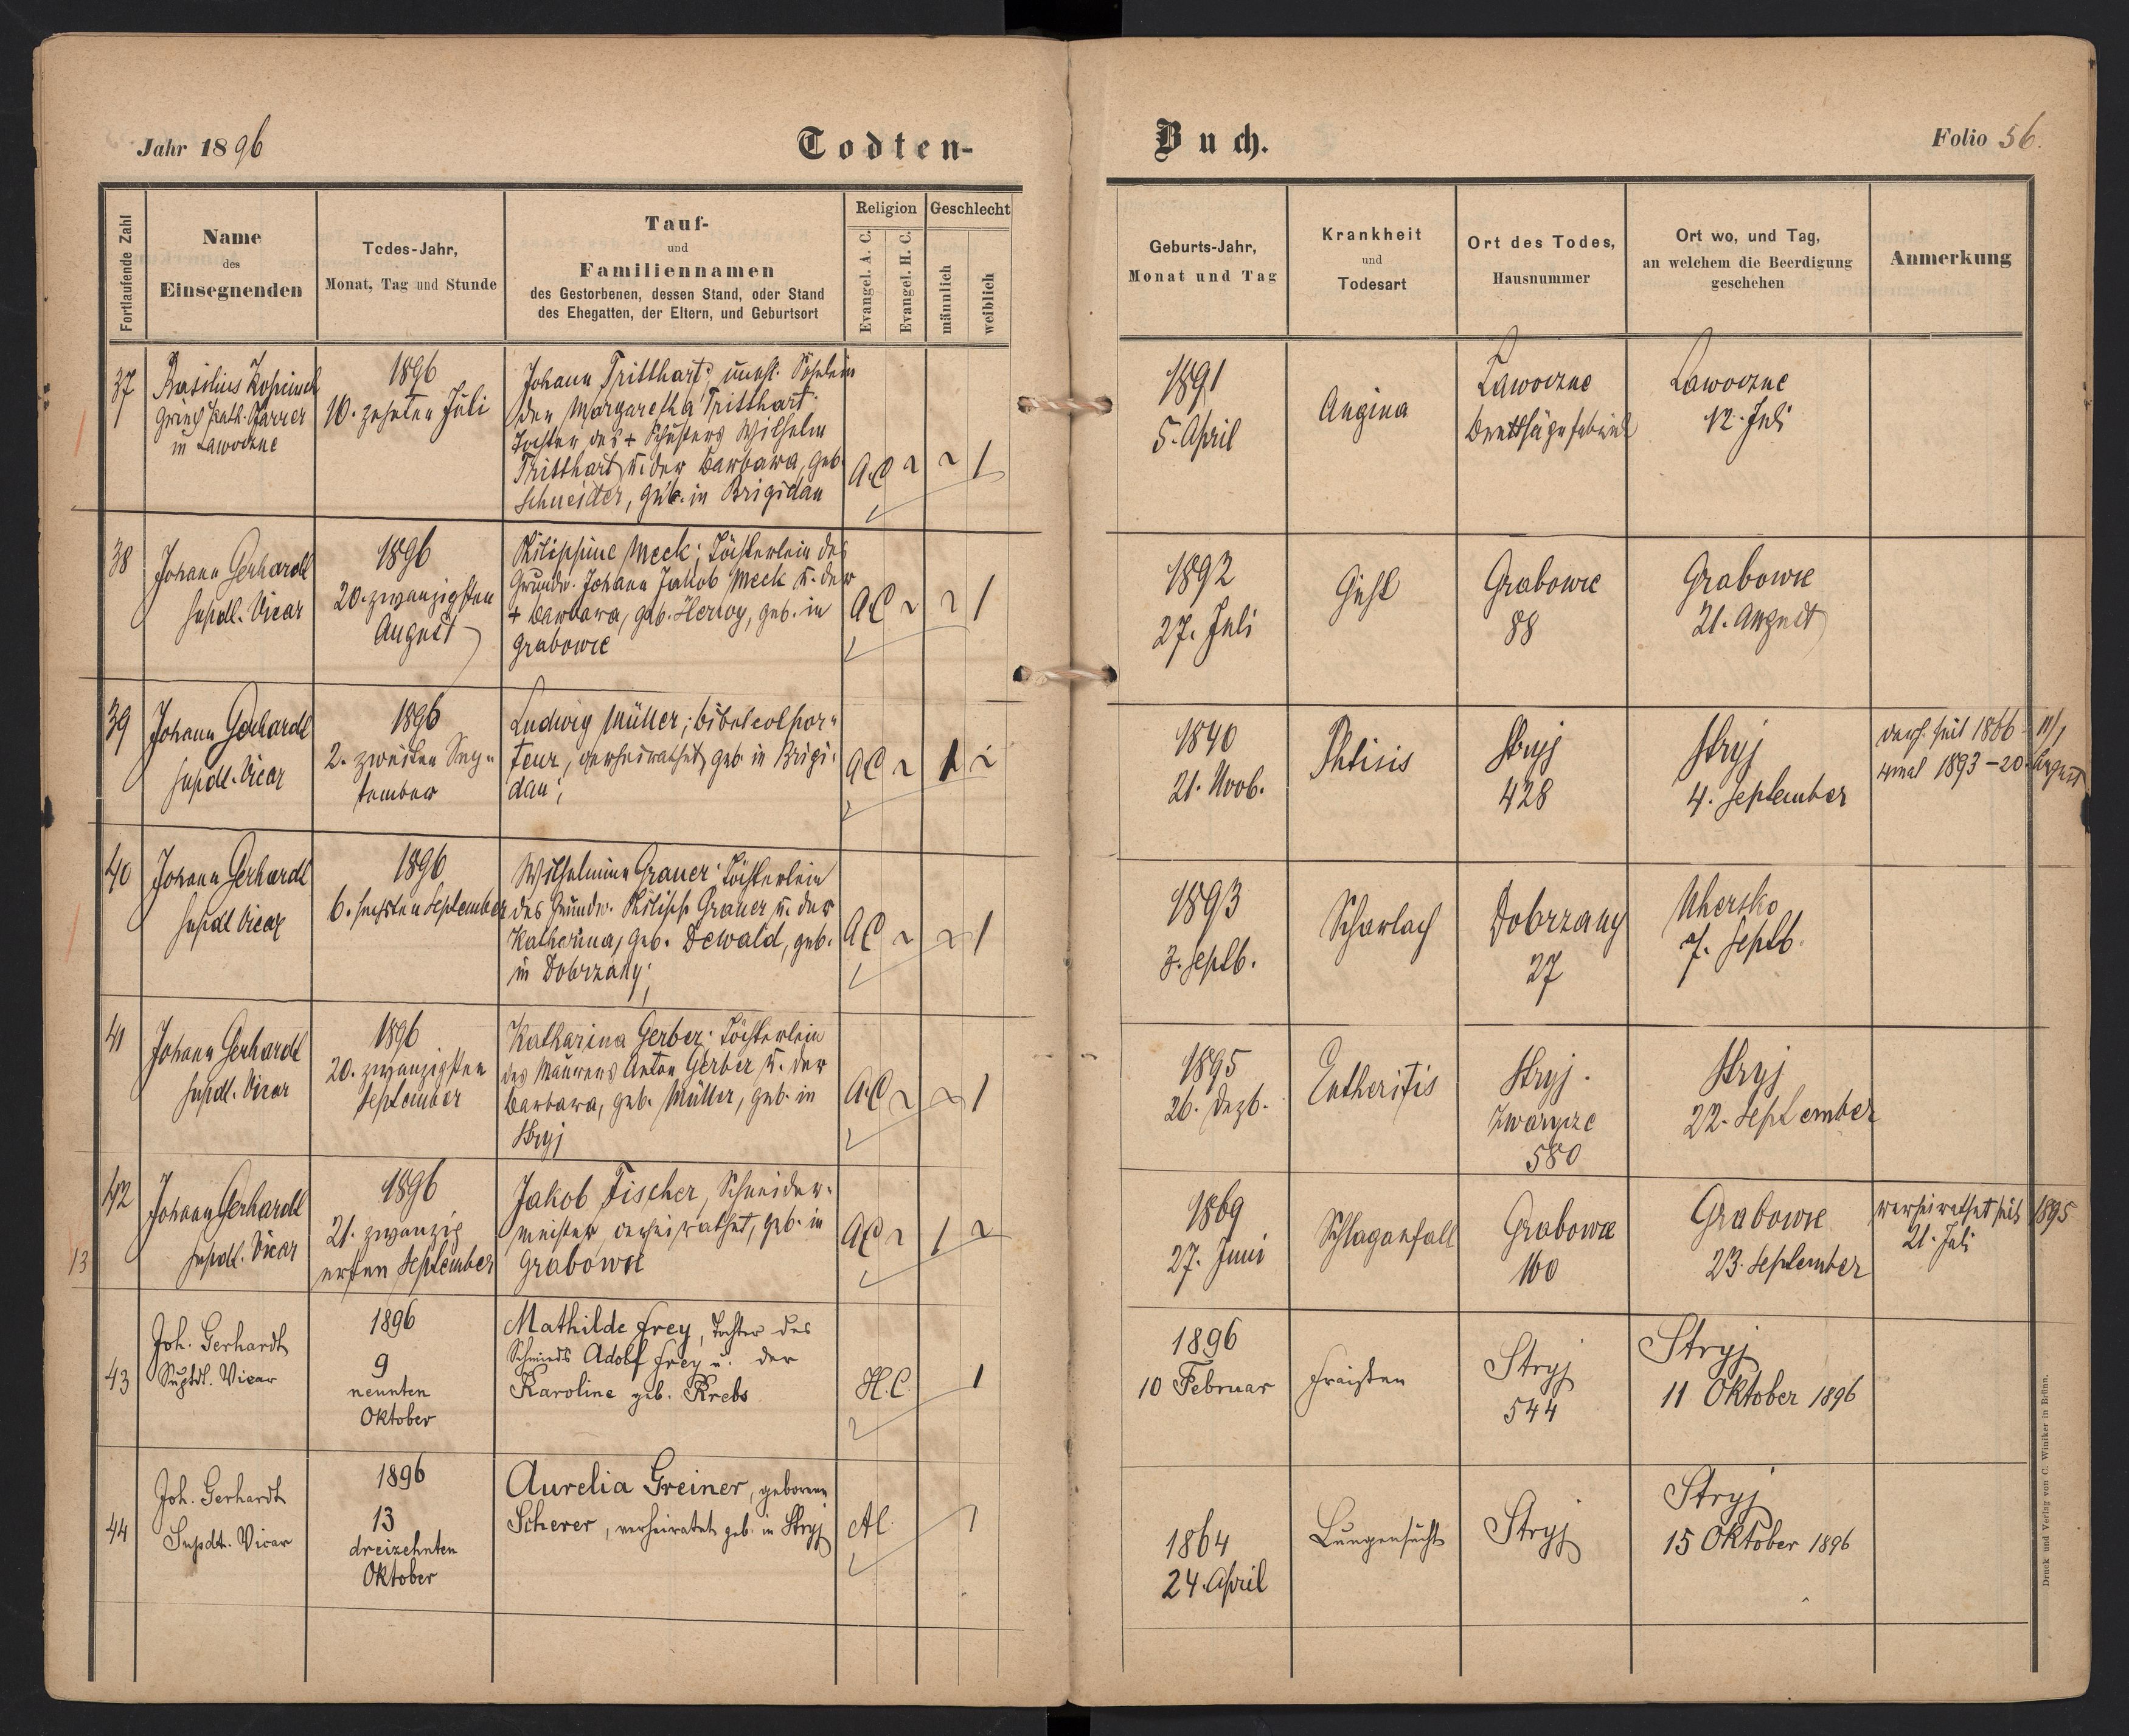 Jahr 1896
Todten-
Buch.
Folio 56.
Fortlaufende Zahl
Name
des
Einsegnenden
Todes-Jahr,
Monat, Tag und Stunde
Tauf-
und
Familiennamen
des Gestorbenen, dessen Stand, oder Stand
des Ehegatten, der Eltern, und Geburtsort
Religion
Evangel. A. C.
Evangel. H. C.
Geschlecht
männlich
weiblich
Geburts-Jahr,
Monat und Tag
Krankheit
und
Todesart
Ort des Todes,
Hausnummer
Ort wo, und Tag,
an welchem die Beerdigung
geschehen
Anmerkung
37
Basilius
Griech. kath. Pfarrer
in Lawoczne
1896
10. zehnten Juli
Johann Tritthart; unehl. Söhnlein
der Margaretha Tritthart
Tochter des + Schusters Wilhelm
Tritthart u. der Barbara, geb.
Schneider, geb. in Brigidau
A.C
1
1891
5. April
Angina
Lawoczne
Brettsägefabrik
Lawoczne
12. Juli
38
Johann Gerhardt
Supdl. Vicar
1896
20. zwanzigsten
August
Philippine Meck; Töchterlein des
Grundw. Johann Jakob Meck u. der
+ Barbara, geb. Herroy, geb. in
Grabowce
A.C
1
1892
27. Juli
Grabowce
88
Grabowce
21. August
39
Johann Gerhardt
Supdl. Vicar
1896
2. zweiten Sep-
tember
Ludwig Müller; Bibelcolpor-
teur, verheirathet, geb. in Brigi-
dau;
A.C
1
1840
21. Novb.
Phtisis
Stryj
428
Stryj
4. September
verh. seit 1866
4mal 1893 – 20. August
40
Johann Gerhardt
Supdl Vicar
1896
6. sechsten September
Wilhelmine Grauer: Töchterlein
des Grundw. Philipp Grauer u. der
Katharina, geb. Dewald, geb.
in Dobrzany;
A.C
1
1893
3. Septb.
Scharlach
Dobrzany
27
Uhersko
7. Septb.
41
Johann Gerhardt
Supdl. Vicar
1896
20. zwanzigsten
September
Katharina Gerber: Töchterlein
des Maurers Anton Gerber u. der
Barbara, geb. Müller, geb. in
Stryj
A.C
1
1895
26. Dezb.
Entheritis
Stryj.
Zwarycze
580
Stryj
22. September
42
Johann Gerhardt
Supdl. Vicar
1896
21. zwanzig
ersten September
Jakob Fischer, Schneider-
meister, verheirathet, geb. in
Grabowce
A.C
1
1869
27. Juni
Schlaganfall
Grabowce
100
Grabowce
23. September
verheirathet seit 1895
21. Juli
13
43
Joh. Gerhardt
Suptdl. Vicar
1896
9
neunten
Oktober
Mathilde Frey, Tochter des
Schmieds Adolf Frey u. der
Karoline geb. Krebs
H.C.
1
1896
10 Februar
Fraisen
Stryj
544
Stryj
11 Oktober 1896
44
Joh. Gerhardt
Supdt. Vicar
1896
13
dreizehnten
Oktober
Aurelia Greiner, geborene
Scherer, verheiratet geb. in Stryj
AC.
1
1864
24. April
Lungensucht
Stryj
Stryj
15 Oktober 1896
Druck und Verlag von C. Winiker in Brünn.